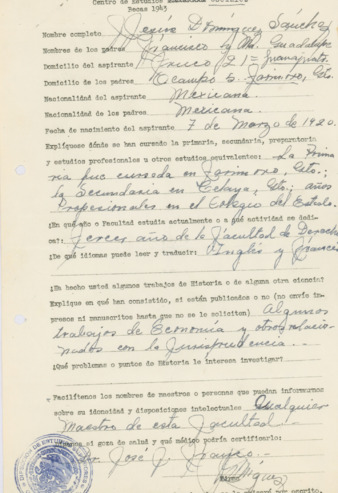 Centro de Estudios
Becas 1943
Nombre completo Domínguez Sánchez
Nombres de los padres Francisco y Ma. Guadalupe
Domicilio del aspirante México 21 = Guanajuato
Domicilio de los padres Ocampo 5 Jarmoro, Gto.
Nacionalidad del aspirante Mexicana.
Nacionalidad de los padres Mexicana.
Fecha de nacimiento del aspirante 7 de Marzo de 1920.
Explíquese dónde se han cursado la primaria, secundaria, preparatoria
y estudios profesionales u otros estudios equivalentes: La Prima
ria fue cursada en Jarmoro, Gto.;
la Secundaria en Celaya, Gto.; años
Profesionales en el Colegio del Estado.
¿En qué año o Facultad estudia actualmente o a qué actividad se dedi-
ca?: Tercer año de la Facultad de Derecho
¿De qué idiomas puede leer y traducir: Inglés y Francés
¿Ha hecho usted algunos trabajos de Historia o de alguna otra ciencia?
Explique en qué han consistido, si están publicados o no (no envíe im
presos ni manuscritos hasta que no se le soliciten) Algunos
trabajos de Economía y otros relacio-
nados con la Jurisprudencia.
¿Qué problemas o puntos de Historia le interesa investigar?
Facilítenos los nombres de maestros o personas que puedan informarnos
sobre su idoneidad y disposiciones intelectuales Cualquier
Maestro de esta Facultad
si goza de salud y qué médico podría certificarlo:
Dr. José J.